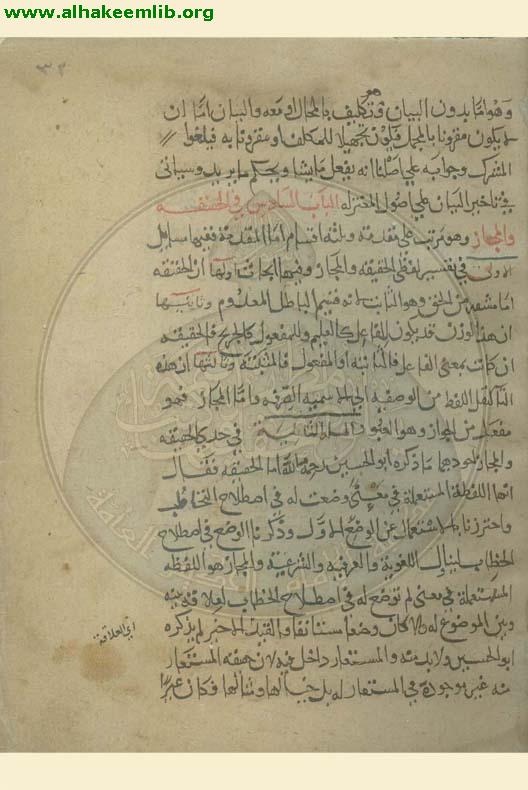 www.alhakeemlib.org
٣٢
وهو اما بدون البيان وهو تكليف بالمحال او معه والبيان اما ان
لا يكون مقرونا بالمجمل فيكون تجهيلا للمكلف او مقرونا به فيلغوا
المشترك وجوابه على اصلنا انه يفعل ما يشا ويحكم ما يريد وسياتى
فى تاخير البيان على اصول المعتزله الباب السادس فى الحقيقه
والمجاز وهو مرتب على مقدمة وثلثه اقسام اما المقدمة ففيها مسايل
الاولى فى تفسير لفظى الحقيقه والمجاز وفيها ابحاث اولها ان الحقيقه
اما مشتقه من الحق وهو الثابت لانه قسيم الباطل المعدوم وثانيها
ان هذا الوزن قد يكون للفاعل كالعليم وللمفعول كالجريح فالحقيقه
ان كانت بمعنى الفاعل فالثابته او المفعول فالمثبته وثالثها ان هذه
التا لنقل اللفظ من الوصفيه الى الاسميه الصرفه واما المجاز فهو
مفعل من الجواز وهو العبور المسلة الثانيه فى حد الحقيقه
والمجاز اجودهما ما ذكره ابو الحسين رحمه الله اما الحقيقه فقال
انها اللفظة المستعملة فى معنى وضعت له فى اصطلاح التخاطب
واحترزنا بالاستعمال عن الوضع الاول وذكرنا الوضع فى اصطلاح
الخطاب ليتناول اللغوية والعرفية والشرعية والمجاز هو اللفظه
المستعملة فى معنى لم توضع له فى اصطلاح الخطاب لعلاقة بينه
وبين الموضوع له والا كان وضعا مستانفا والقيد الاخير لم يذكره
اى العلاقة
ابو الحسين ولا بد منه والمستعار داخل فيه لان حقيقه المستعار
منه غير موجودة فى المستعار له بل خيالها ومثالها فكان